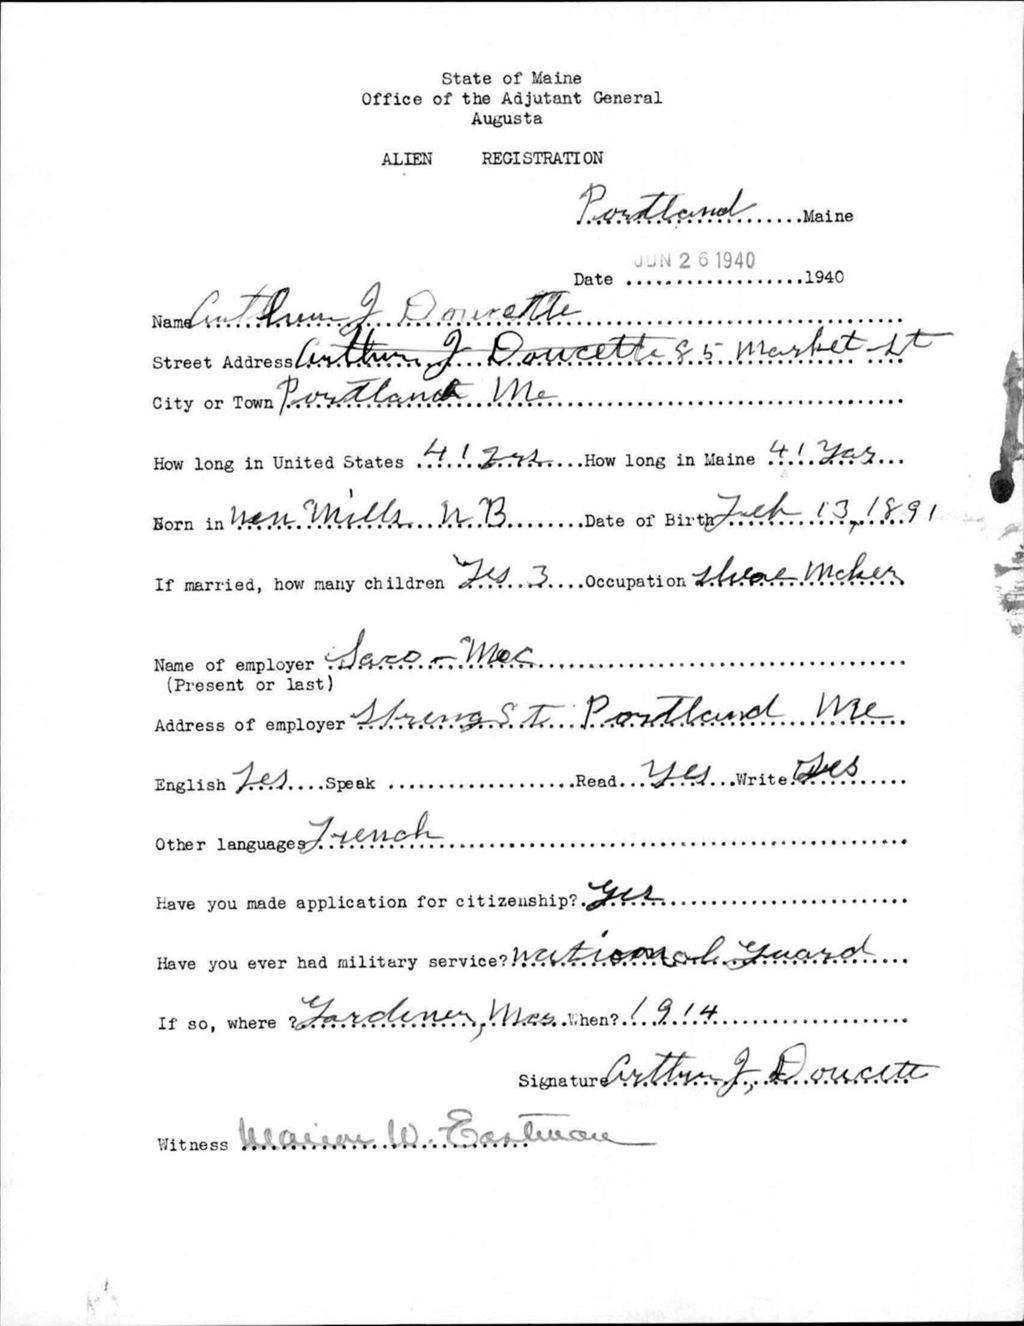 State of Maine
Office of the Adjutant General
Augusta
ALIEN REGISTRATION
Portland Maine
Date JUN 26 1940 1940
Name Arthur J Doucette
Street Address Arthur J Doucette 85 Market St
City or Town Portland Me
How long in United States 41 yrs How long in Maine 41 Yars
Born in Mills N B Date of Birth Feb 13, 1891
If married, how many children Yes 3 Occupation Shoe Mcker
Name of employer Saco - Moc
(Present or last)
Address of employer St Portland Me
English Yes Speak Read Yes Write Yes
Other languages French
Have you made application for citizenship? Yes
Have you ever had military service? National Guard
If so, where ? Gardener, Mas When? 1914
Signature Arthur J, Doucette
Witness Marion W. Eastman